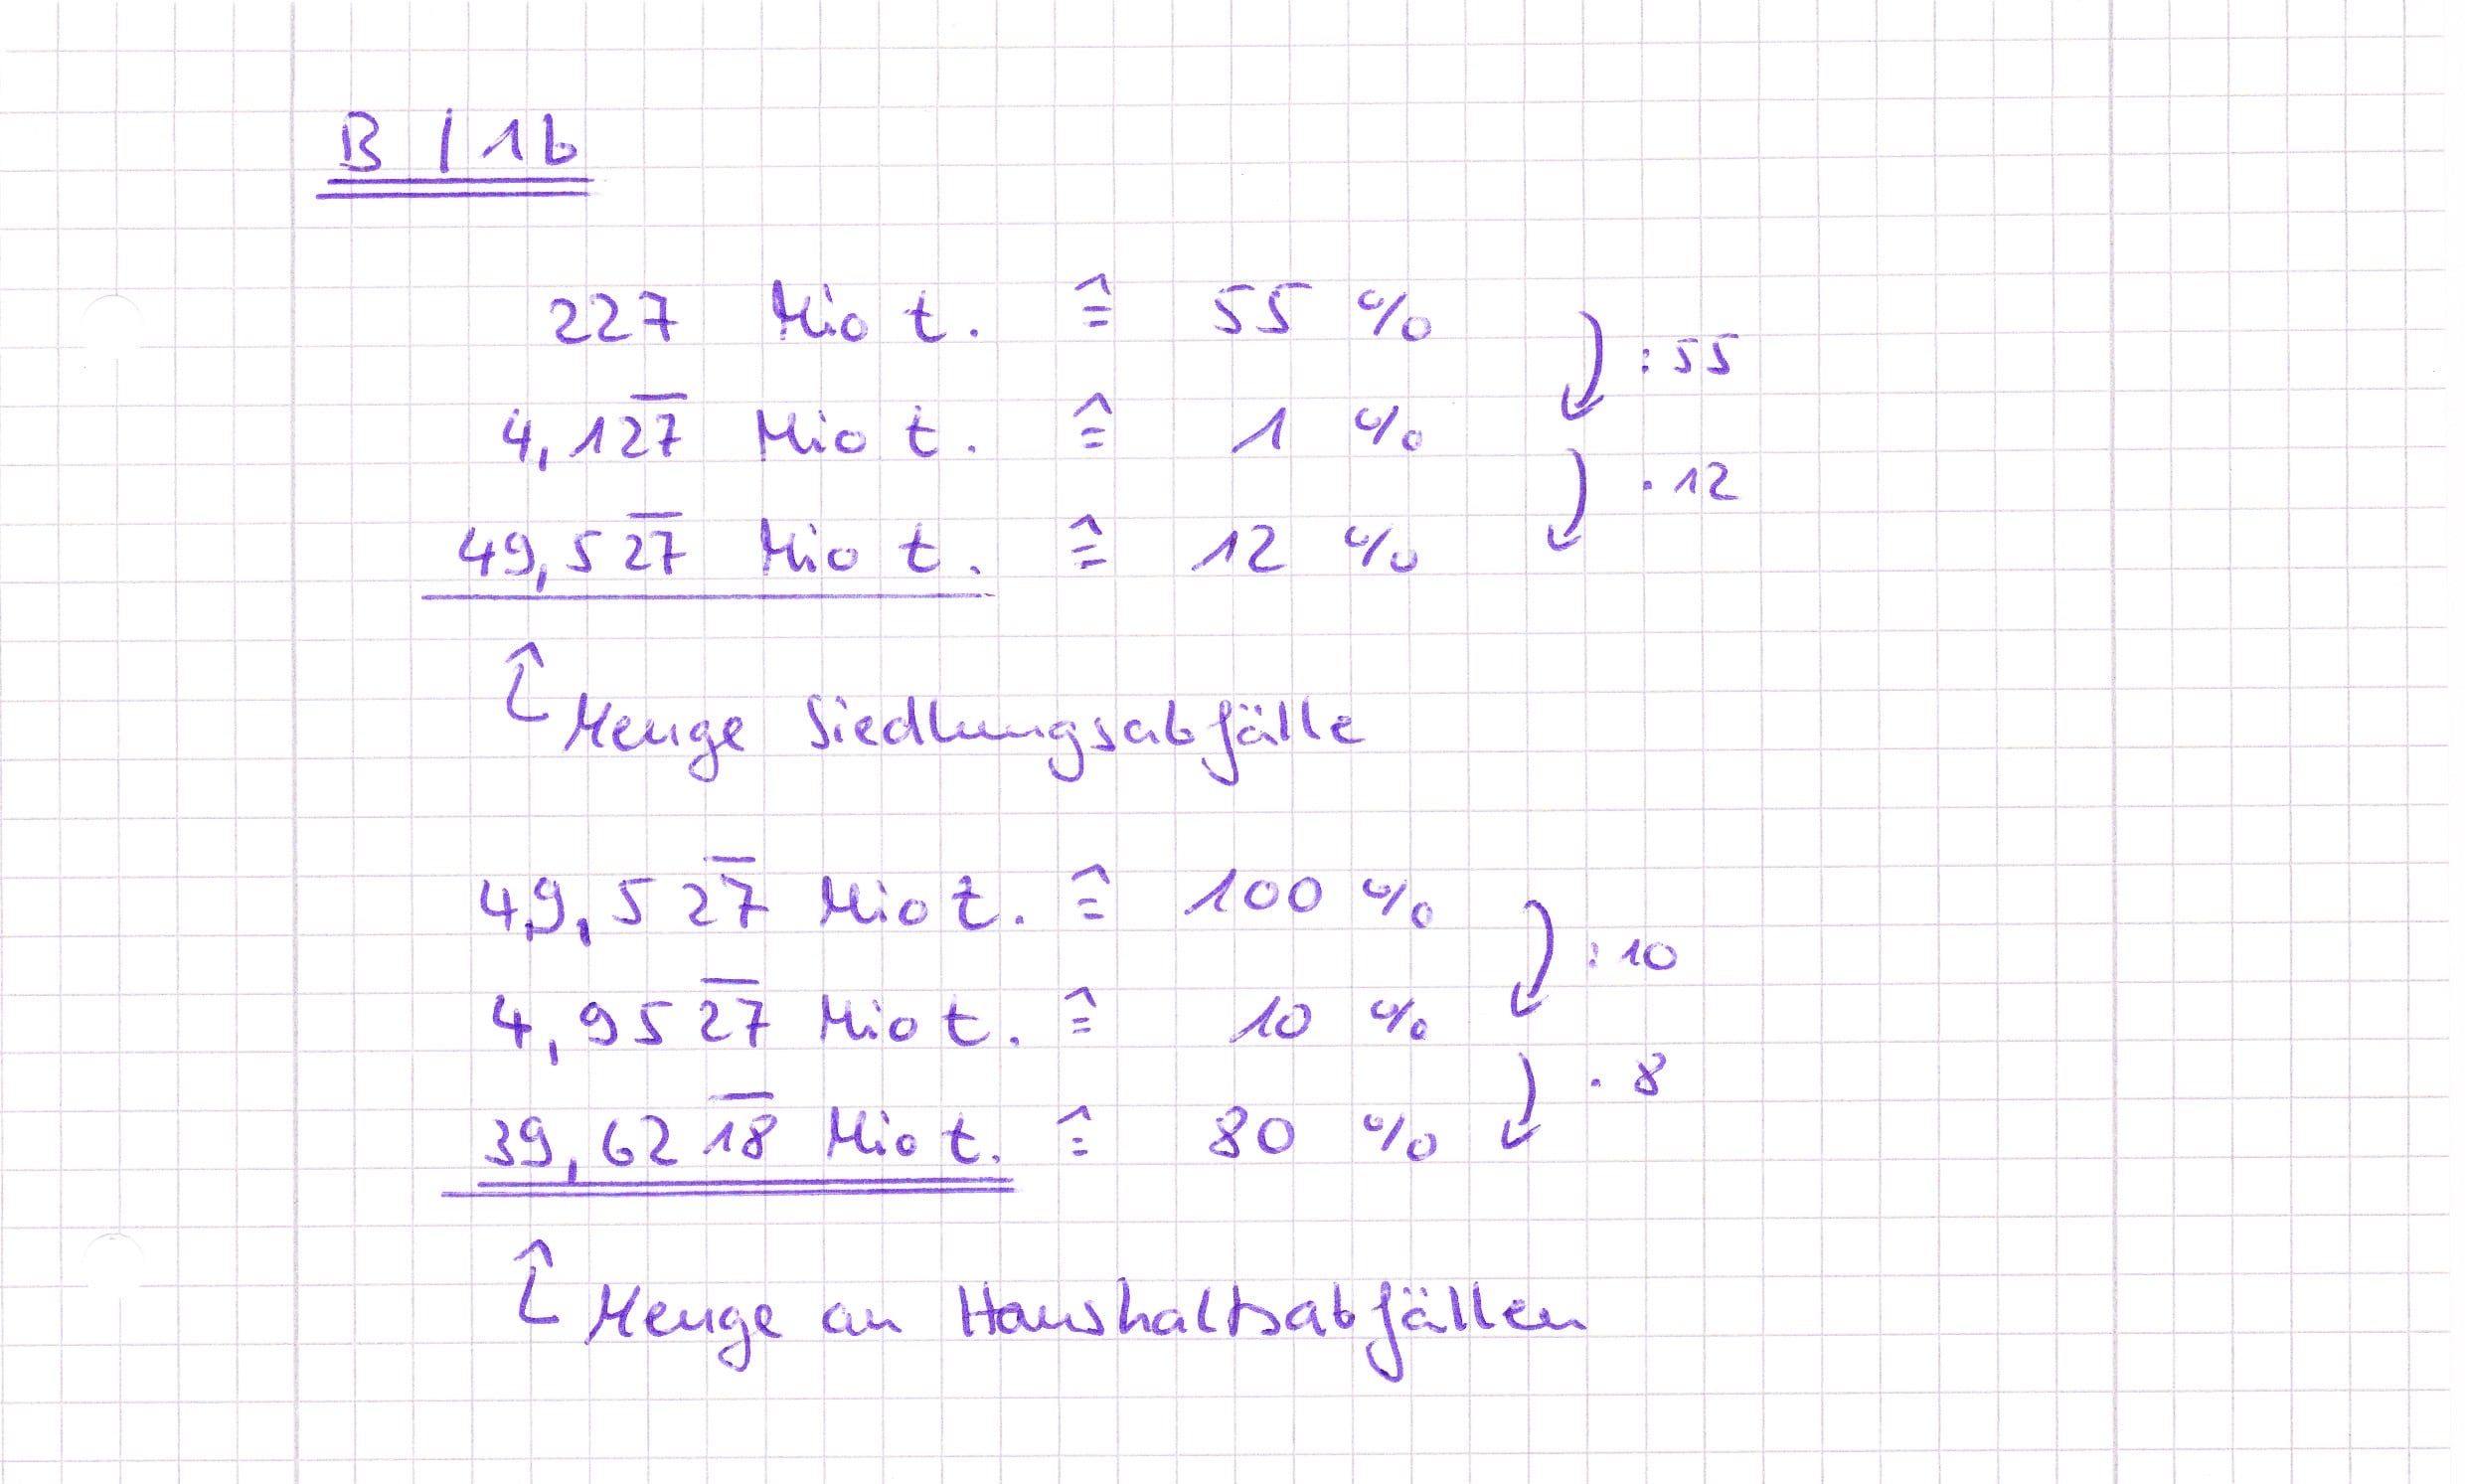 B / 1b
227 Mio t. ≙ 55 %
: 55
4,12̅7̅ Mio t. ≙ 1 %
· 12
49,52̅7̅ Mio t. ≙ 12 %
Menge Siedlungsabfälle
49,52̅7̅ Mio t. ≙ 100 %
: 10
4,952̅7̅ Mio t. ≙ 10 %
· 8
39,621̅8̅ Mio t. ≙ 80 %
Menge an Haushaltsabfällen